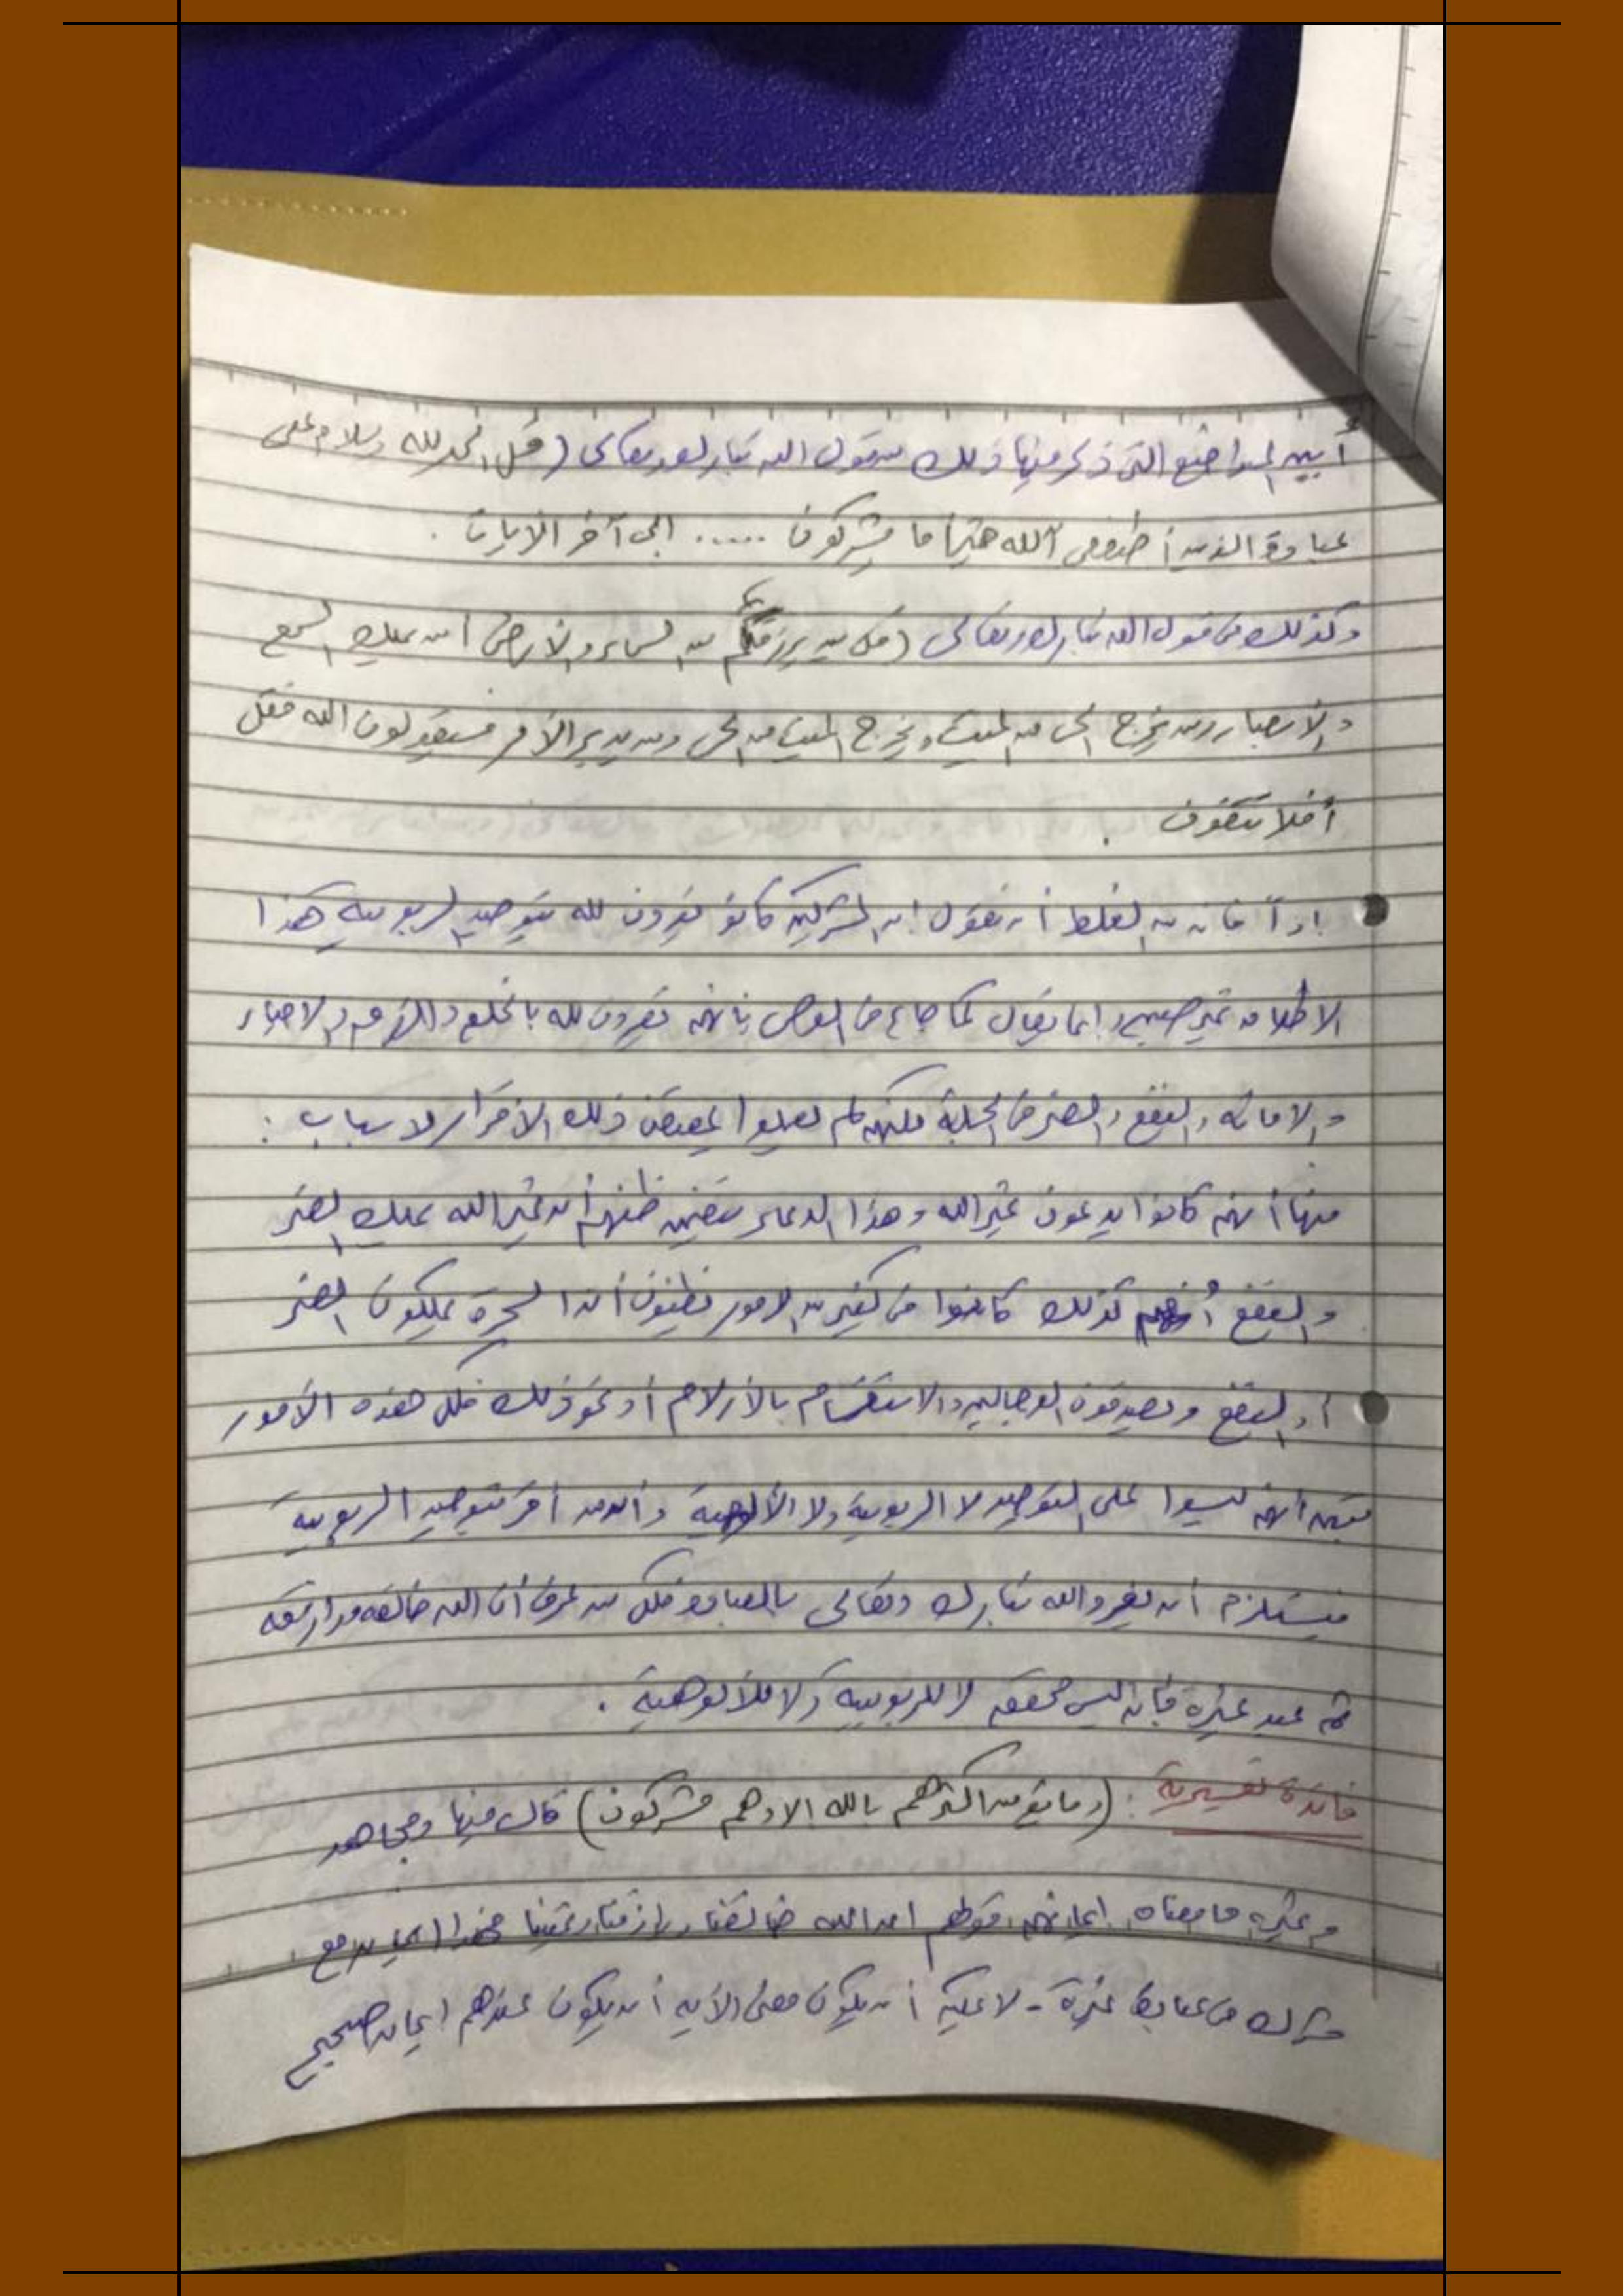 أبين المواضع التي ذكر فيها ذلك قول الله تبارك وتعالى (قل الحمد لله وسلام على
عباده الذين اصطفى آلله خير أما يشركون ..... إلى آخر الآيات .
وكذلك في قول الله تبارك وتعالى (قل من يرزقكم من السماء والأرض أمن يملك السمع
والأبصار ومن يخرج الحي من الميت ويخرج الميت من الحي ومن يدبر الأمر فسيقولون الله فقل
أفلا تتقون .
إذاً فإن من الغلط أن نقول إن المشركين كانو يقرون لله بتوحيد الربوبية هذا
الاطلاق غير صحيح وإنما يقال كما جاء في النص بأنهم يقرون لله بالخلق والرزق والاحياء
والاماته والنفع والضر في الجملة لكنهم لم يعملوا بمقتضى ذلك الأقرار لاسباب :
منها أنهم كانوا يدعون غير الله وهذا الدعاء يتضمن ظنهم أن غير الله يملك الضر
والنفع كذلك كانوا في كثير من الامور يظنون أن السحرة يملكون الضر
أو النفع ويصدقون الدجالين والاستقسام بالأزلام أو نحو ذلك فكل هذه الأمور
تبين أنهم ليسوا على التوحيد لا الربوبية ولا الألوهية وأن من أقر بتوحيد الربوبية
فيستلزم أن يفرد الله تبارك وتعالى بالعبادة فكل من عرف أن الله خالقه ورازقه
ثم عبد غيره فإنه ليس محققه لا للربوبية ولا للألوهية .
فائدة تفسيرية : (وما يؤمن اكثرهم بالله الا وهم مشركون) قال فيها مجاهد
وغيره ما معناه إيمانهم قولهم ان الله خالقنا ورازقنا ويميتنا فهذا إيمان مع
شرك في عبادة غيره - لا يمكن أن يكون معنى الأية أن يكون عندهم إيمان صحيح